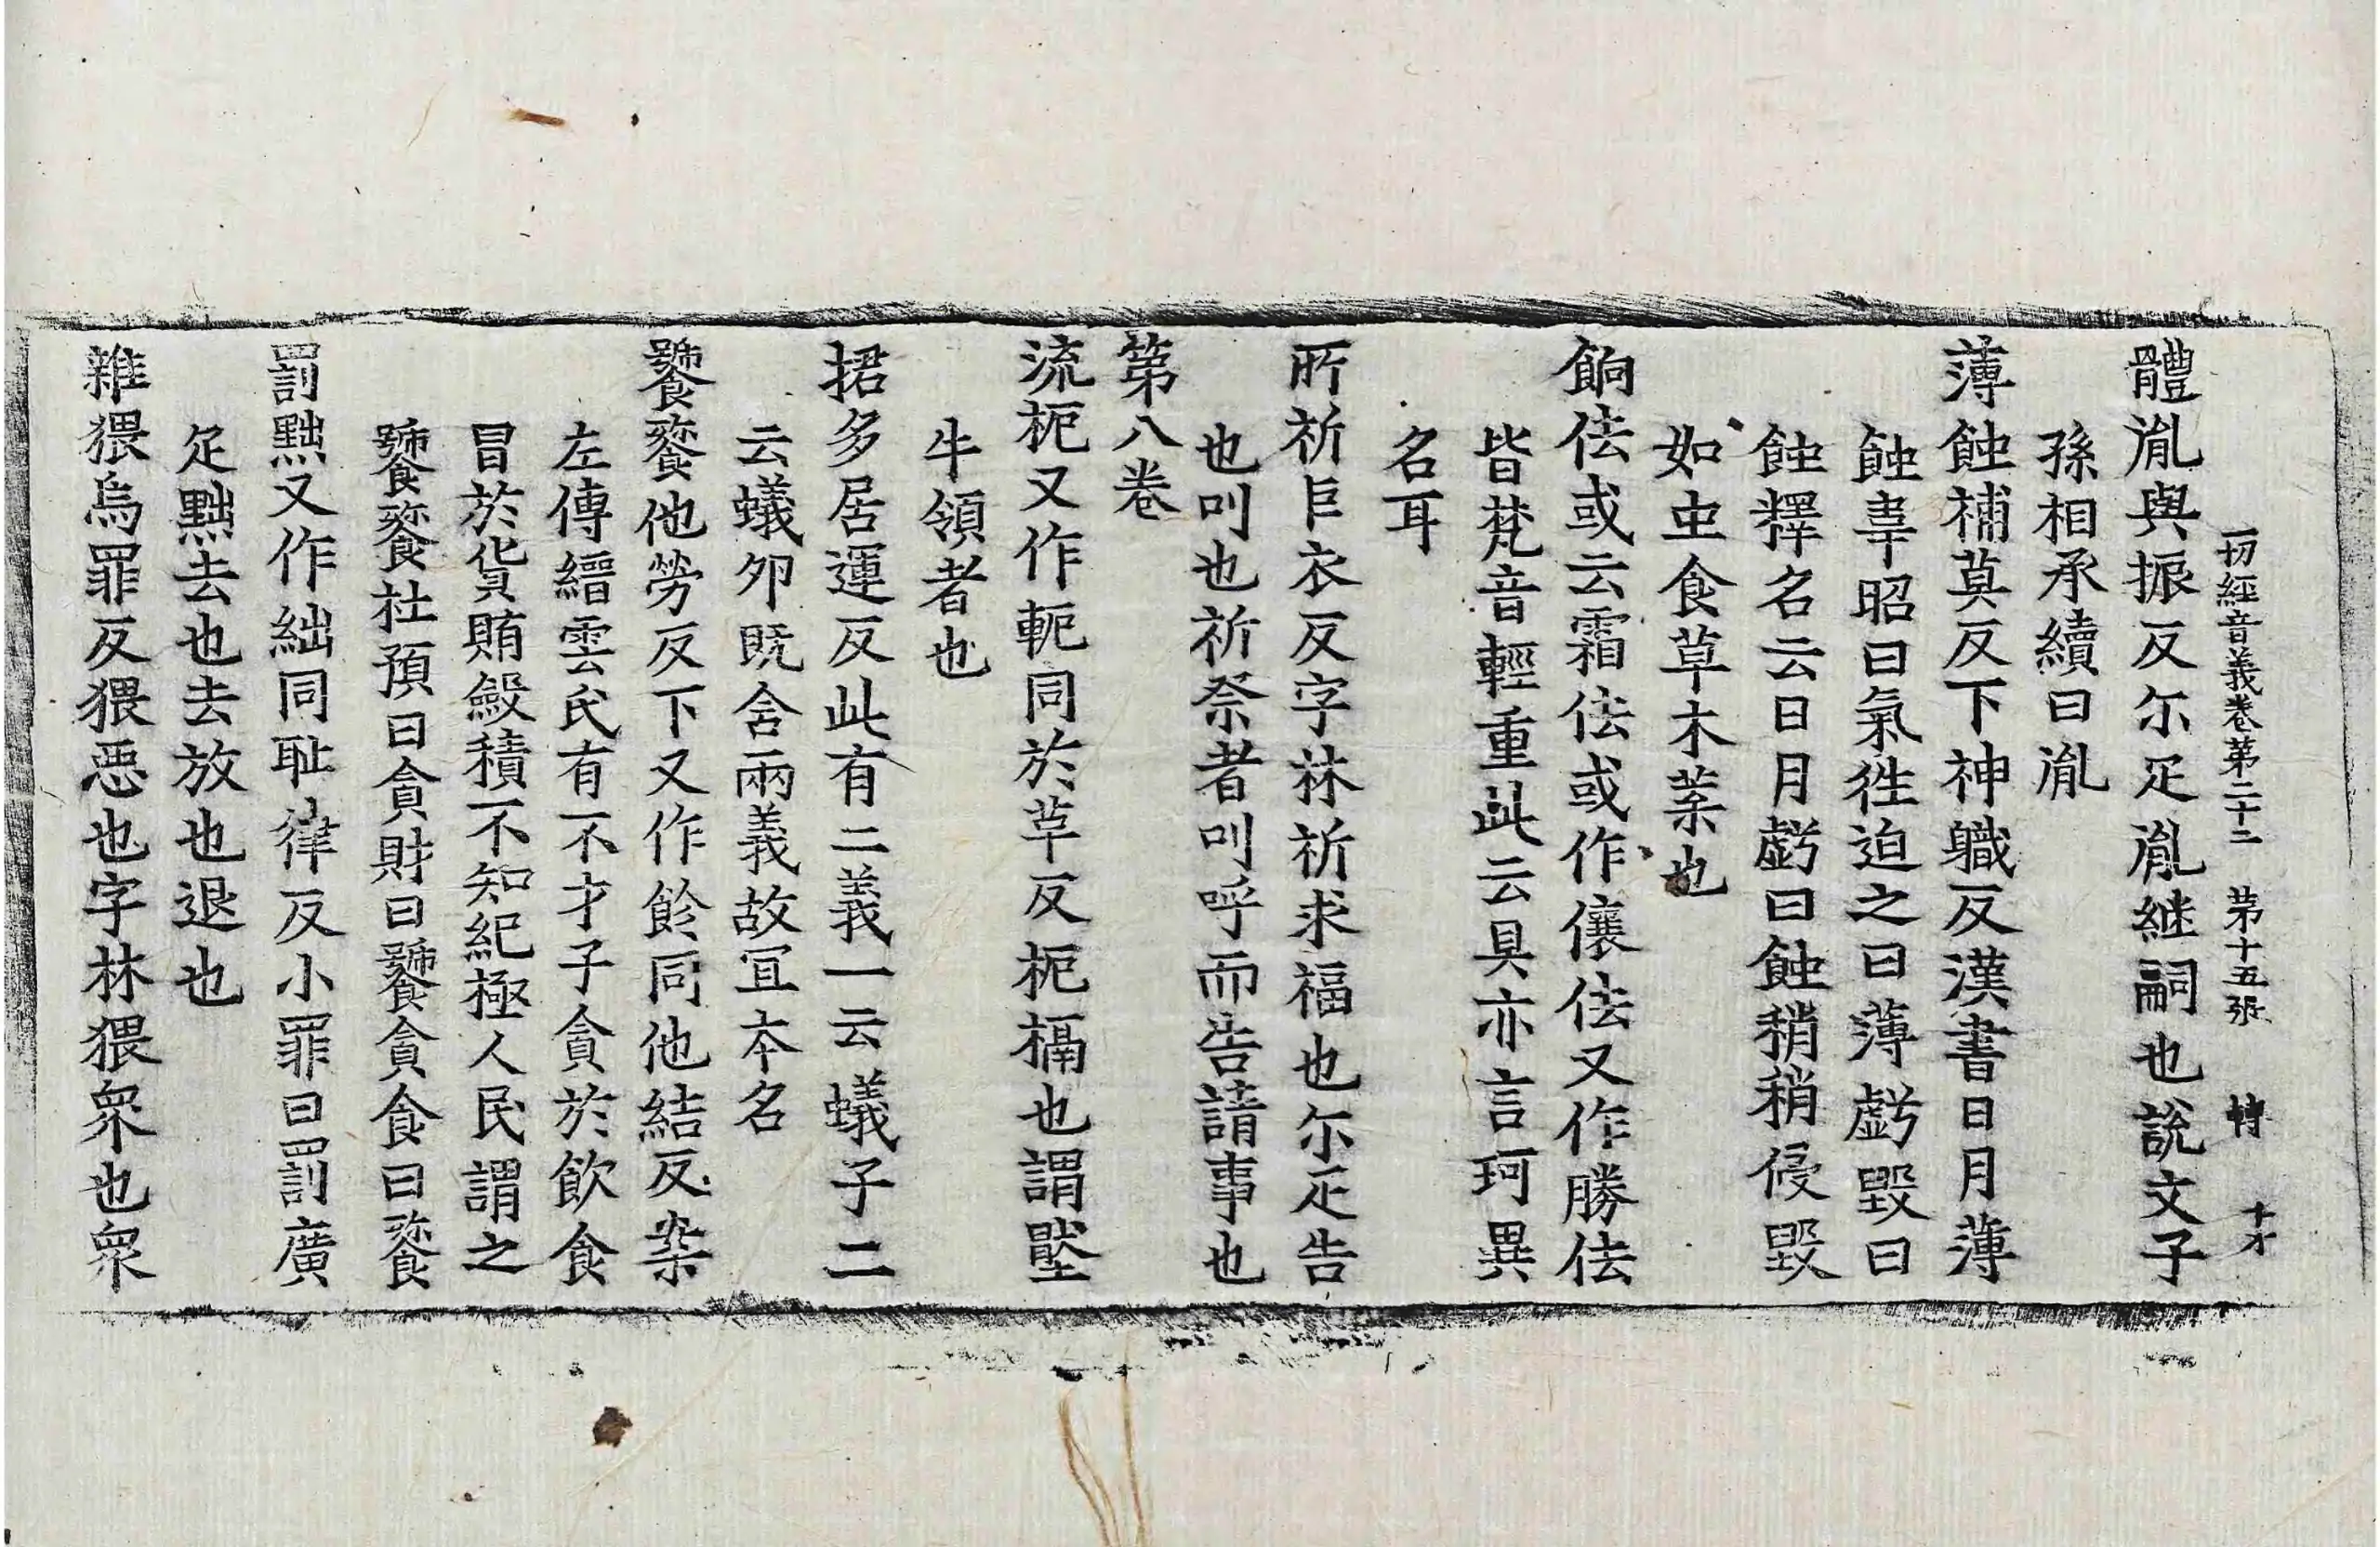 一切經音義卷第二十二 第十五張 轉 十才
體胤與振反尓疋胤継嗣也說文子
孫相承續曰胤
薄蝕補莫反下神職反漢書日月薄
蝕韋昭曰氣往迫之曰薄虧毀曰
蝕釋名云日月虧曰蝕稍稍侵毀
如虫食草木葉也
餉佉或云霜佉或作儴佉又作勝佉
皆梵音輕重此云具亦言珂異
名耳
所祈巨衣反字林祈求福也尓疋告
也叫也祈祭者叫呼而告請事也
第八卷
流枙又作軛同於革反枙槅也謂壓
牛領者也
捃多居運反此有二義一云蟻子二
云蟻夘既含兩義故冝本名
饕餮他勞反下又作飻同他結反案
左傳縉雲氏有不才子貪於飲食
冒於貨賄斂積不知紀極人民謂之
饕餮杜預曰貪財曰饕貪食曰餮
罰黜又作絀同耻律反小罪曰罰廣
疋黜去也去放也退也
雜猥烏罪反猥惡也字林猥衆也衆